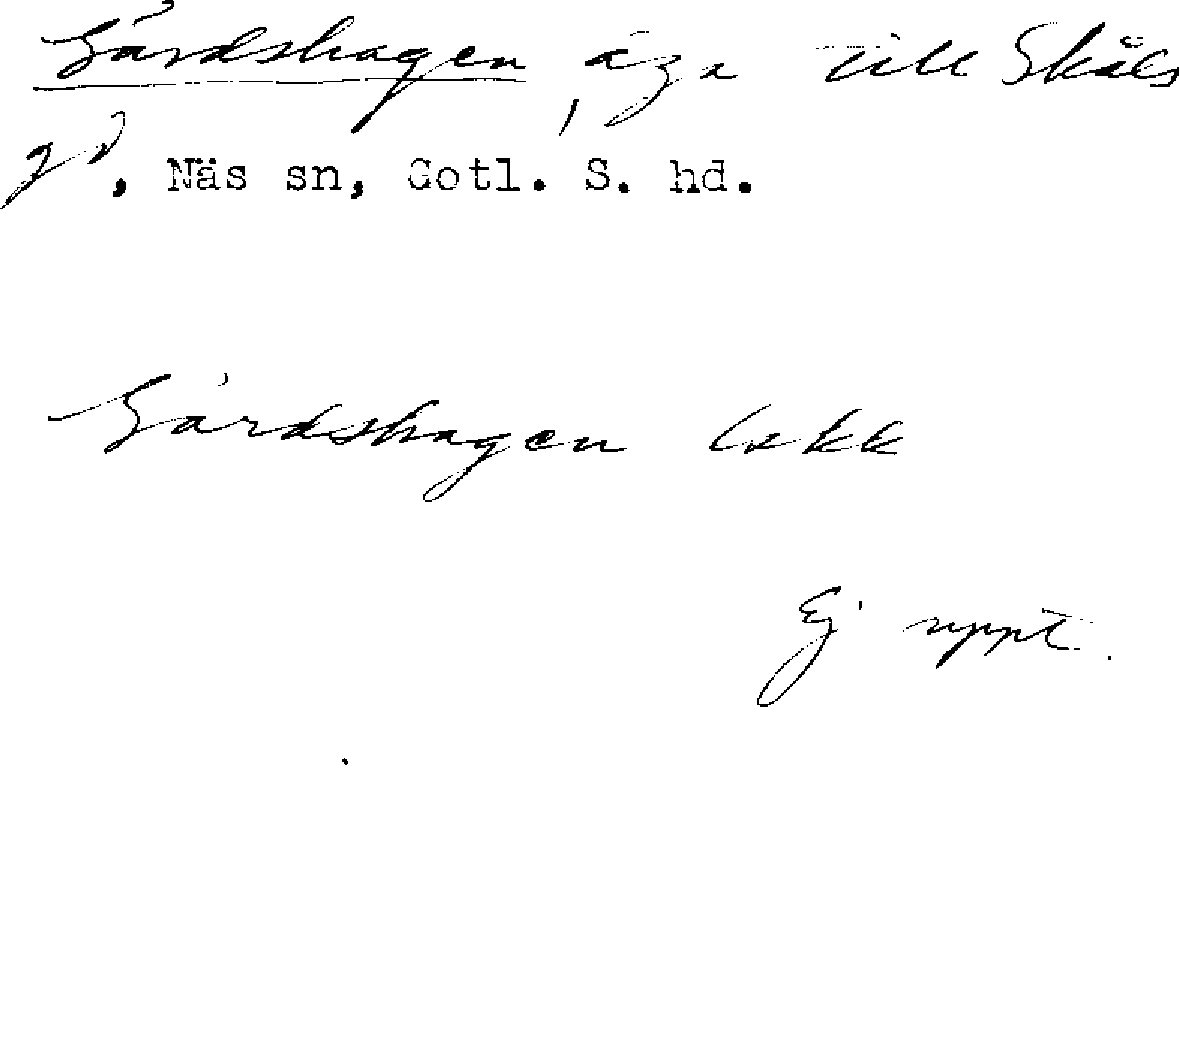 Gårdshagen, äga till Skåls
gd, Näs sn, Gotl. S. hd.
Gårdshagen Lskk
Ej uppt.